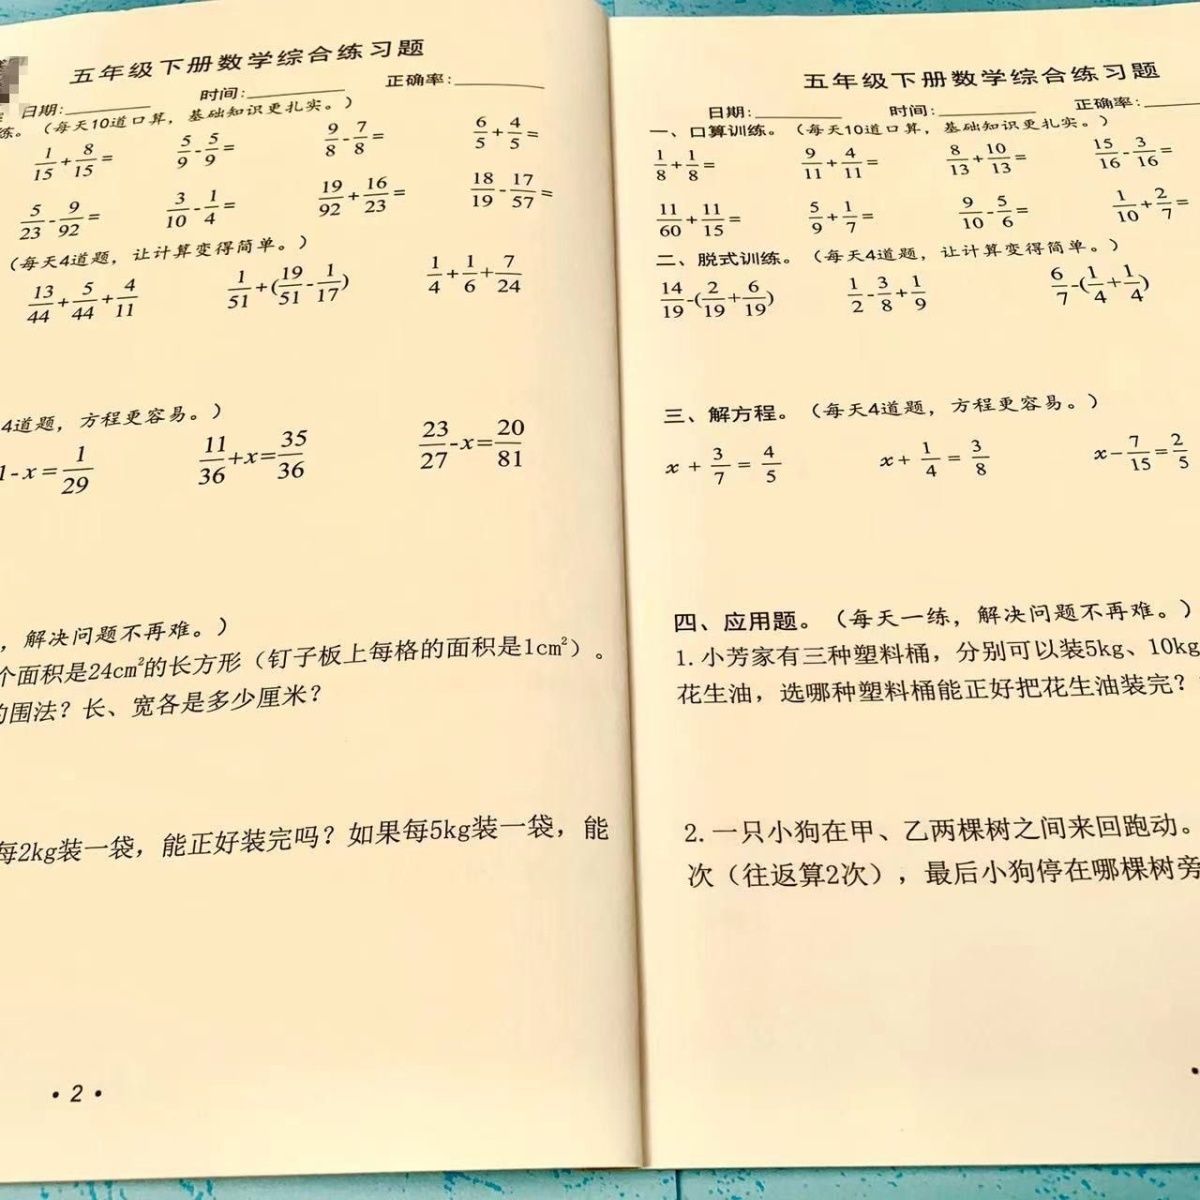 五年级下册数学综合练习题
日期:________ 时间:________ 正确率:________
练。（每天10道口算，基础知识更扎实。）
1/15+8/15= 5/9-5/9= 9/8-7/8= 6/5+4/5=
5/23-9/92= 3/10-1/4= 19/92+16/23= 18/19-17/57=
（每天4道题，让计算变得简单。）
13/44+5/44+4/11 1/51+(19/51-1/17) 1/4+1/6+7/24
4道题，方程更容易。）
1-x=1/29 11/36+x=35/36 23/27-x=20/81
，解决问题不再难。）
个面积是24cm²的长方形（钉子板上每格的面积是1cm²）。
的围法？长、宽各是多少厘米？
每2kg装一袋，能正好装完吗？如果每5kg装一袋，能
·2·
五年级下册数学综合练习题
日期:________ 时间:________ 正确率:________
一、口算训练。（每天10道口算，基础知识更扎实。）
1/8+1/8= 9/11+4/11= 8/13+10/13= 15/16-3/16=
11/60+11/15= 5/9+1/7= 9/10-5/6= 1/10+2/7=
二、脱式训练。（每天4道题，让计算变得简单。）
14/19-(2/19+6/19) 1/2-3/8+1/9 6/7-(1/4+1/4)
三、解方程。（每天4道题，方程更容易。）
x+3/7=4/5 x+1/4=3/8 x-7/15=2/5
四、应用题。（每天一练，解决问题不再难。）
1.小芳家有三种塑料桶，分别可以装5kg、10kg
花生油，选哪种塑料桶能正好把花生油装完？
2.一只小狗在甲、乙两棵树之间来回跑动。
次（往返算2次），最后小狗停在哪棵树旁